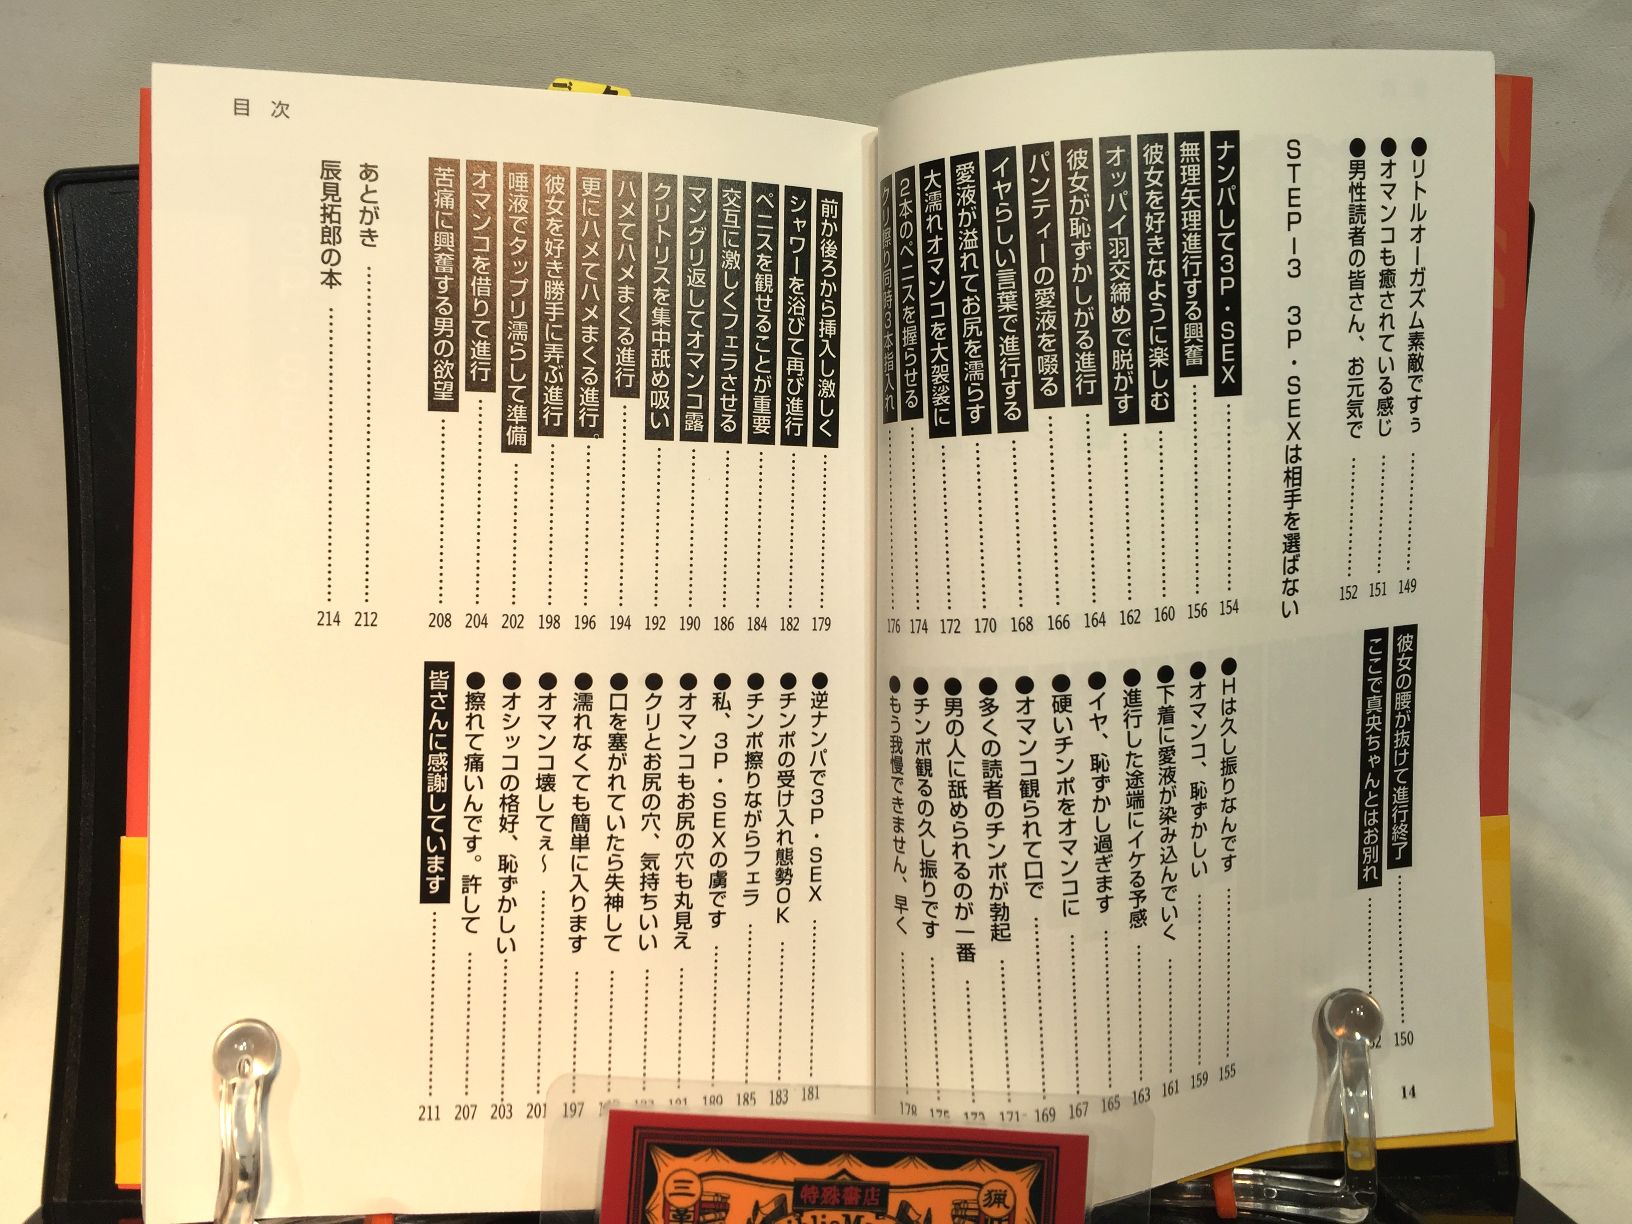 ●リトルオーガズム素敵ですぅ 149
●オマンコも癒されている感じ 151
●男性読者の皆さん、お元気で 152
彼女の腰が抜けて進行終了 150
ここで真央ちゃんとはお別れ
STEP−3 3P・SEXは相手を選ばない
ナンパして3P・SEX 154
無理矢理進行する興奮 156
彼女を好きなように楽しむ 160
オッパイ羽交締めで脱がす 162
彼女が恥ずかしがる進行 164
パンティーの愛液を啜る 166
イヤらしい言葉で進行する 168
愛液が溢れてお尻を濡らす 170
大濡れオマンコを大袈裟に 172
2本のペニスを握らせる 174
クリ擦り同時3本指入れ 176
●Hは久し振りなんです 155
●オマンコ、恥ずかしい 159
●下着に愛液が染み込んでいく 161
●進行した途端にイケる予感 163
●イヤ、恥ずかし過ぎます 165
●硬いチンポをオマンコに 167
●オマンコ観られて口で 169
●多くの読者のチンポが勃起 171
●男の人に舐められるのが一番 173
●チンポ観るの久し振りです 175
●もう我慢できません、早く 178
14
目次
前か後ろから挿入し激しく 179
シャワーを浴びて再び進行 182
ペニスを観せることが重要 184
交互に激しくフェラさせる 186
マングリ返してオマンコ露 190
クリトリスを集中舐め吸い 192
ハメてハメまくる進行 194
更にハメてハメまくる進行。 196
彼女を好き勝手に弄ぶ進行 198
唾液でタップリ濡らして準備 202
オマンコを借りて進行 204
苦痛に興奮する男の欲望 208
あとがき 212
辰見拓郎の本 214
●逆ナンパで3P・SEX 181
●チンポの受け入れ態勢OK 183
●チンポ擦りながらフェラ 185
●私、3P・SEXの虜です 189
●オマンコもお尻の穴も丸見え 191
●クリとお尻の穴、気持ちいい
●口を塞がれていたら失神して
●濡れなくても簡単に入ります 197
●オマンコ壊してぇ～ 201
●オシッコの格好、恥ずかしい 203
●擦れて痛いんです。許して 207
皆さんに感謝しています 211
特殊書店